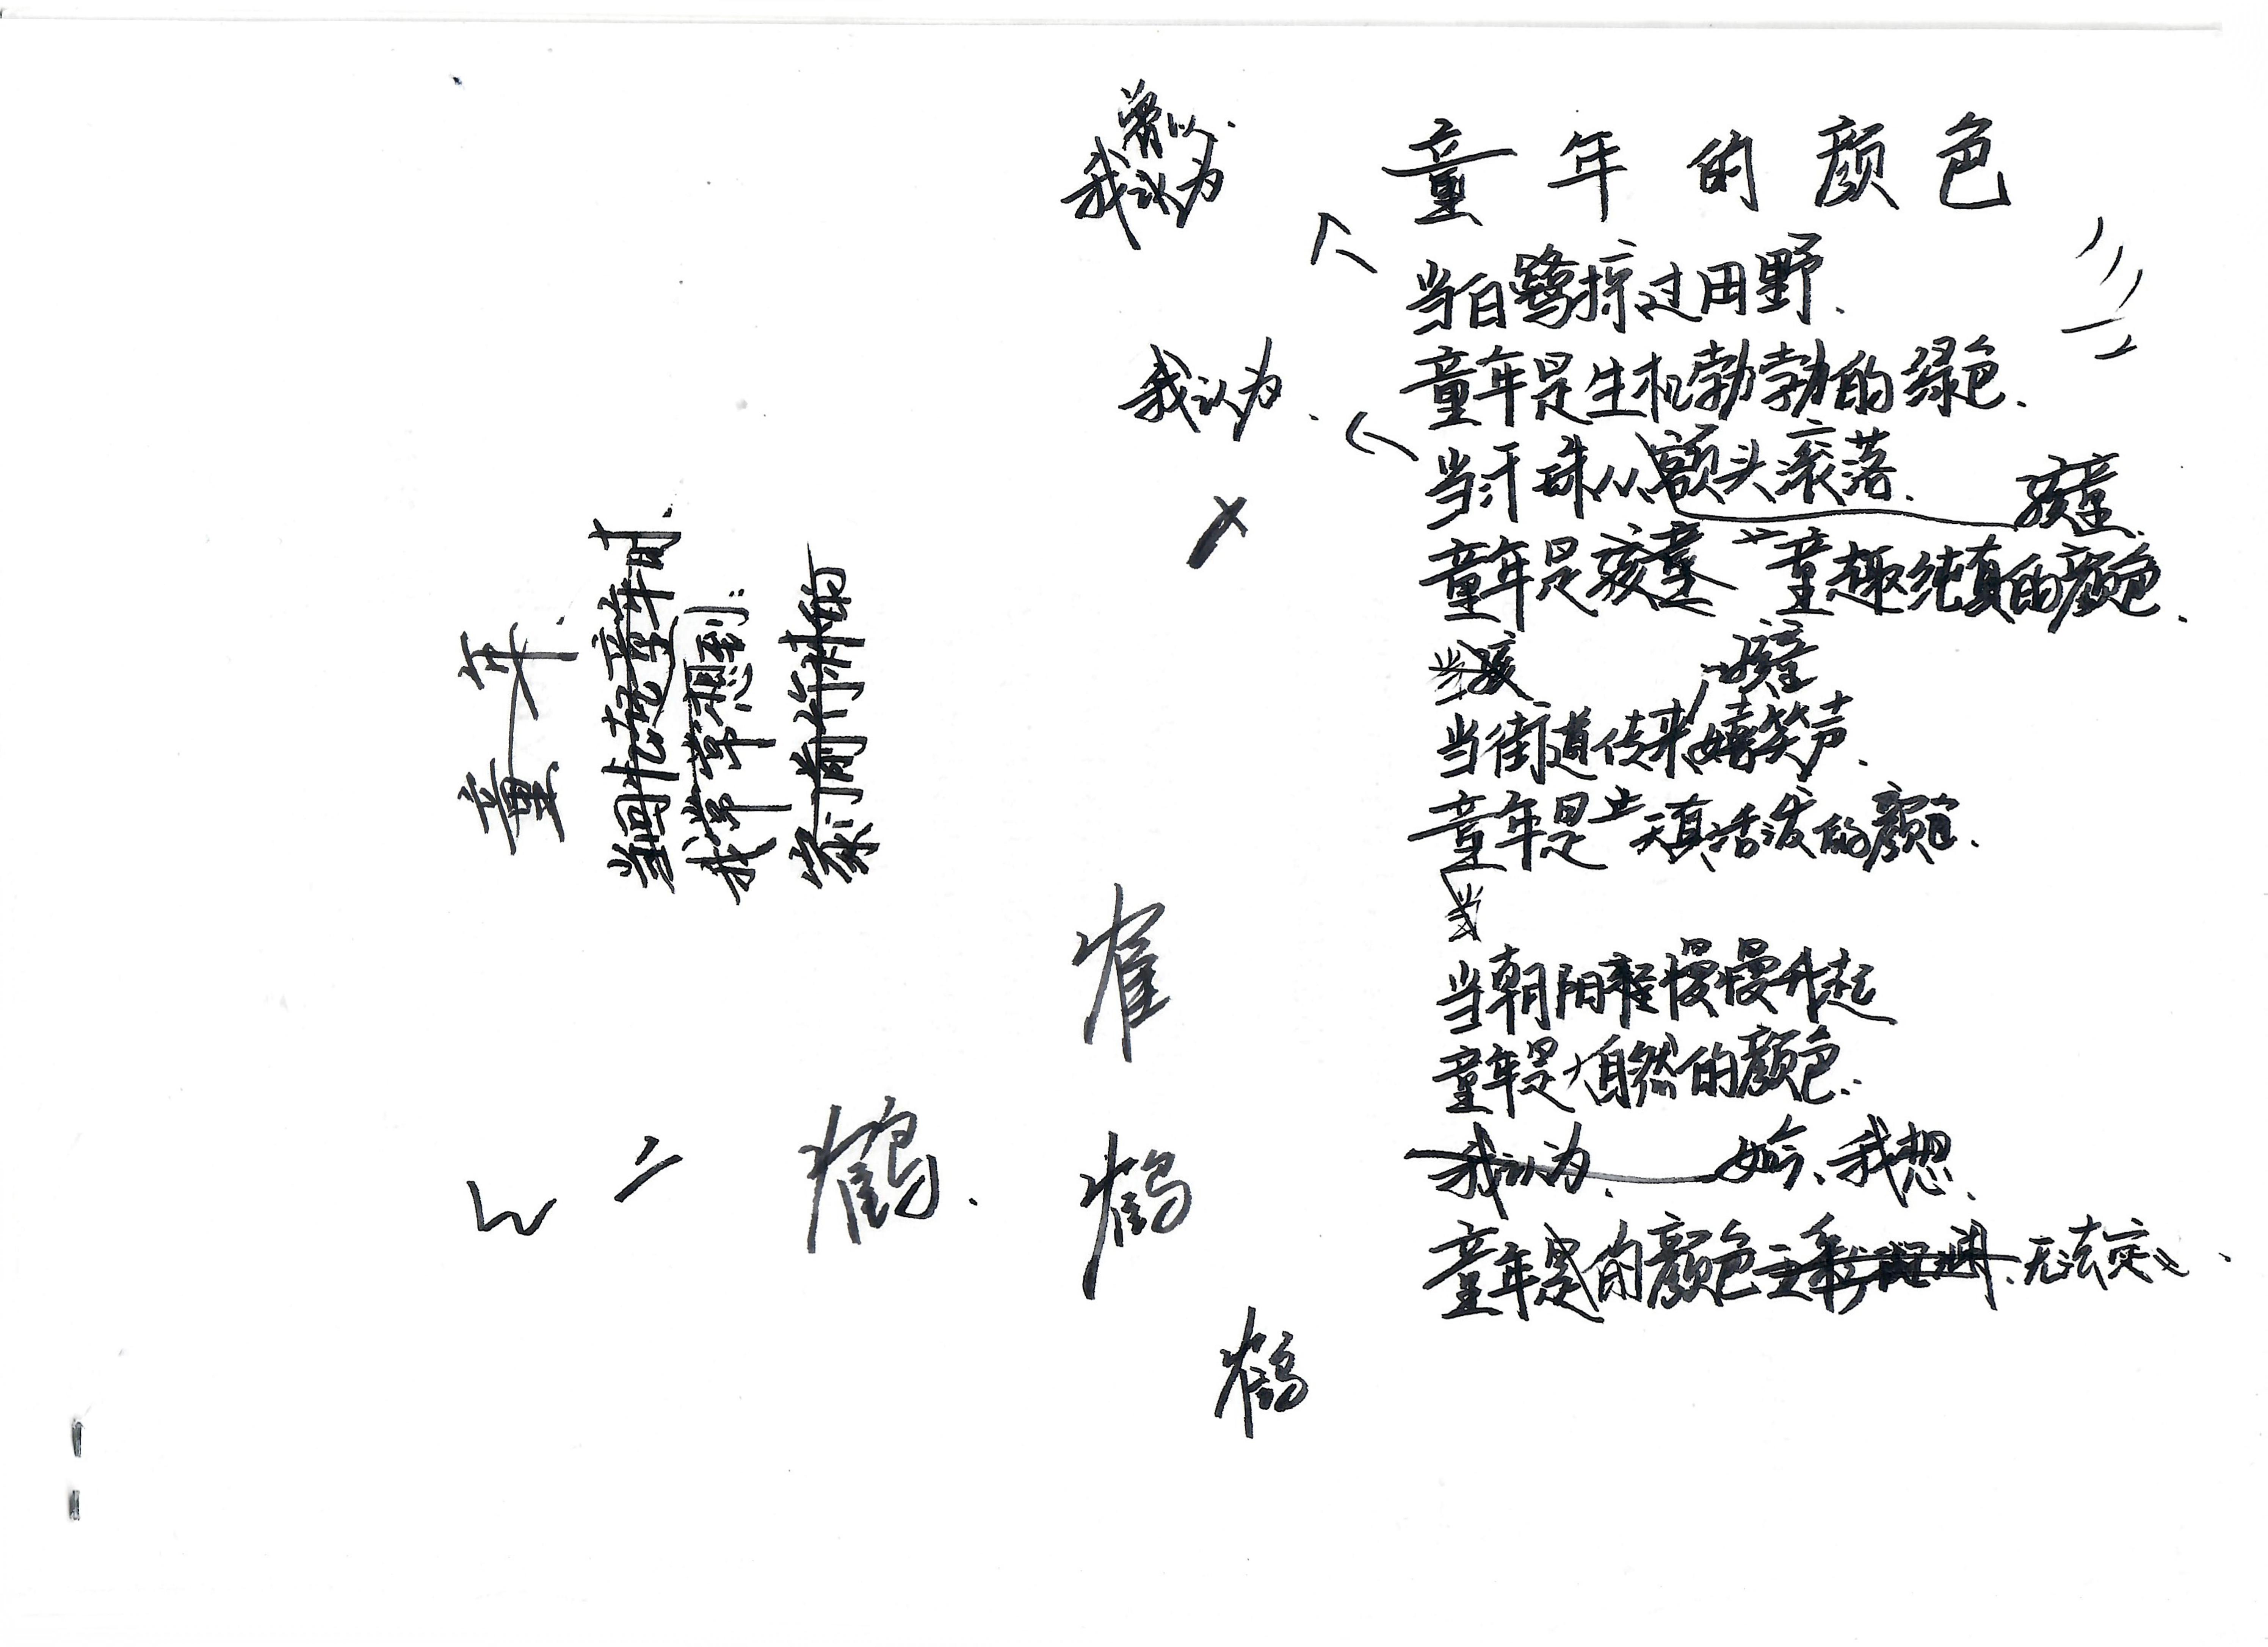 童年的颜色
当白鹭掠过田野.
童年是生机勃勃的绿色.
当汗珠从额头滚落.
孩童
童年是孩童 童趣纯真的颜色.
当孩
孩童
当街道传来嬉笑声.
童年是天真活泼的颜色.
当
当朝阳慢慢升起
童年是大自然的颜色.
我认为. 如今、我想.
童年是的颜色 无法定义.
曾以.
我认为
我认为.
童年.
当回忆起童年时、
我常常想到:
家门前竹林的
鹤.
鹤
鹤